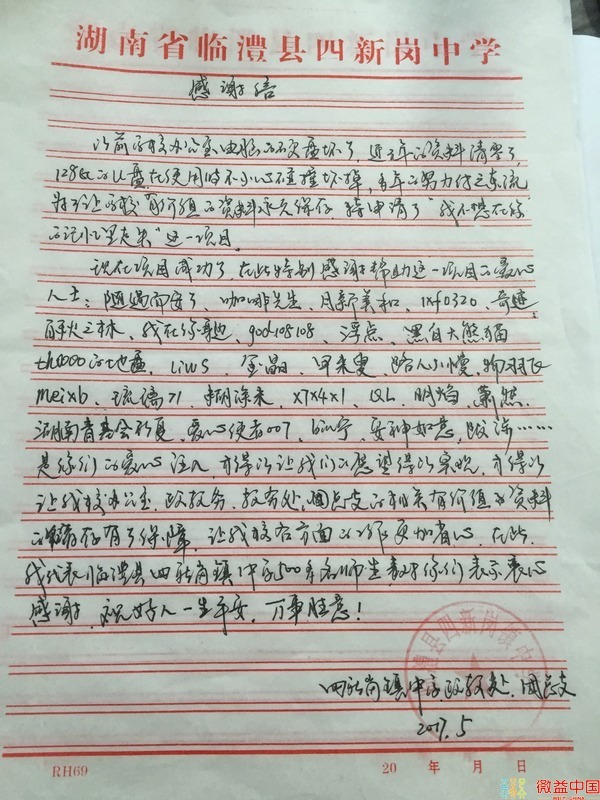 湖南省临澧县四新岗中学
感谢信
以前我校办公室电脑的硬盘坏了，近年的资料清零了，
128G的U盘在使用时不小心碰撞坏掉，多年的努力付之东流
为了让我校有价值的资料永久保存 特申请了"我不想在你
的记忆里走失"这一项目。
现在项目成功了 在此特别感谢帮助这一项目的爱心
人士：随遇而安了、咖啡先生、月新美和、1xf0320、奇迹、
野火之林、我在你身边、god108108、浮点、黑白大熊猫
th0000的地盘、liws、金晶、甲来叟、路人小慢、
meixb、琉璃71、糊涂来、x7x4x1、QL、明焰、萧然、
湖南青基会彩夏、爱心使者007、安神如意、……
是你们的爱心注入，才得以让我们的愿望得以实现，才得以
让我校办公室、政教处、教务处、团总支的相关有价值的资料
的储存有了保障，让我校各方面的工作更加省心，在此，
我代表临澧县四新岗镇中学500多名师生 对你们表示衷心
感谢，祝好人一生平安，万事胜意！
四新岗镇中学政教处、团总支
2017.5
县四新岗镇中
RH69
20 年 月 日
微益中国